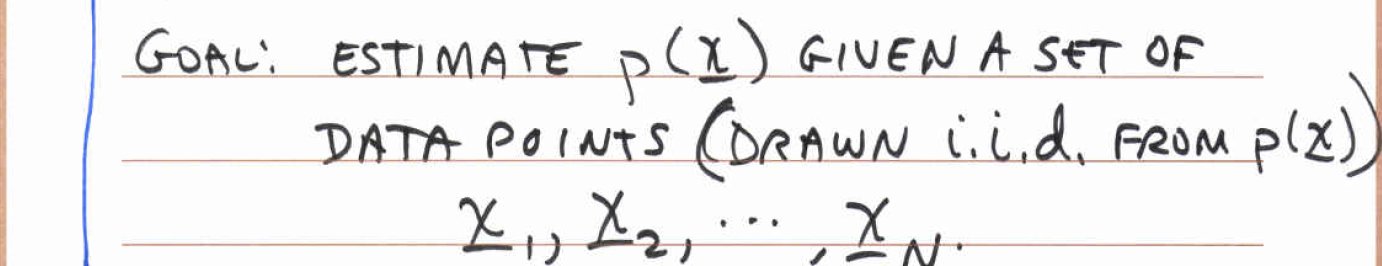 GOAL: ESTIMATE p(x) GIVEN A SET OF
DATA POINTS (DRAWN i.i.d. FROM p(x))
x₁, x₂, ..., x_N.